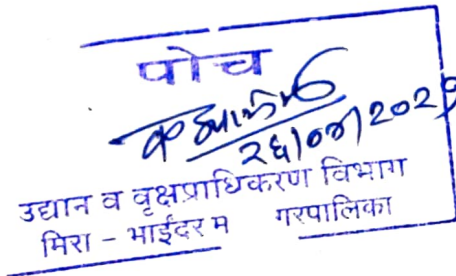 पोच
उद्यान व वृक्षप्राधिकरण विभाग
मिरा - भाईंदर म गरपालिका